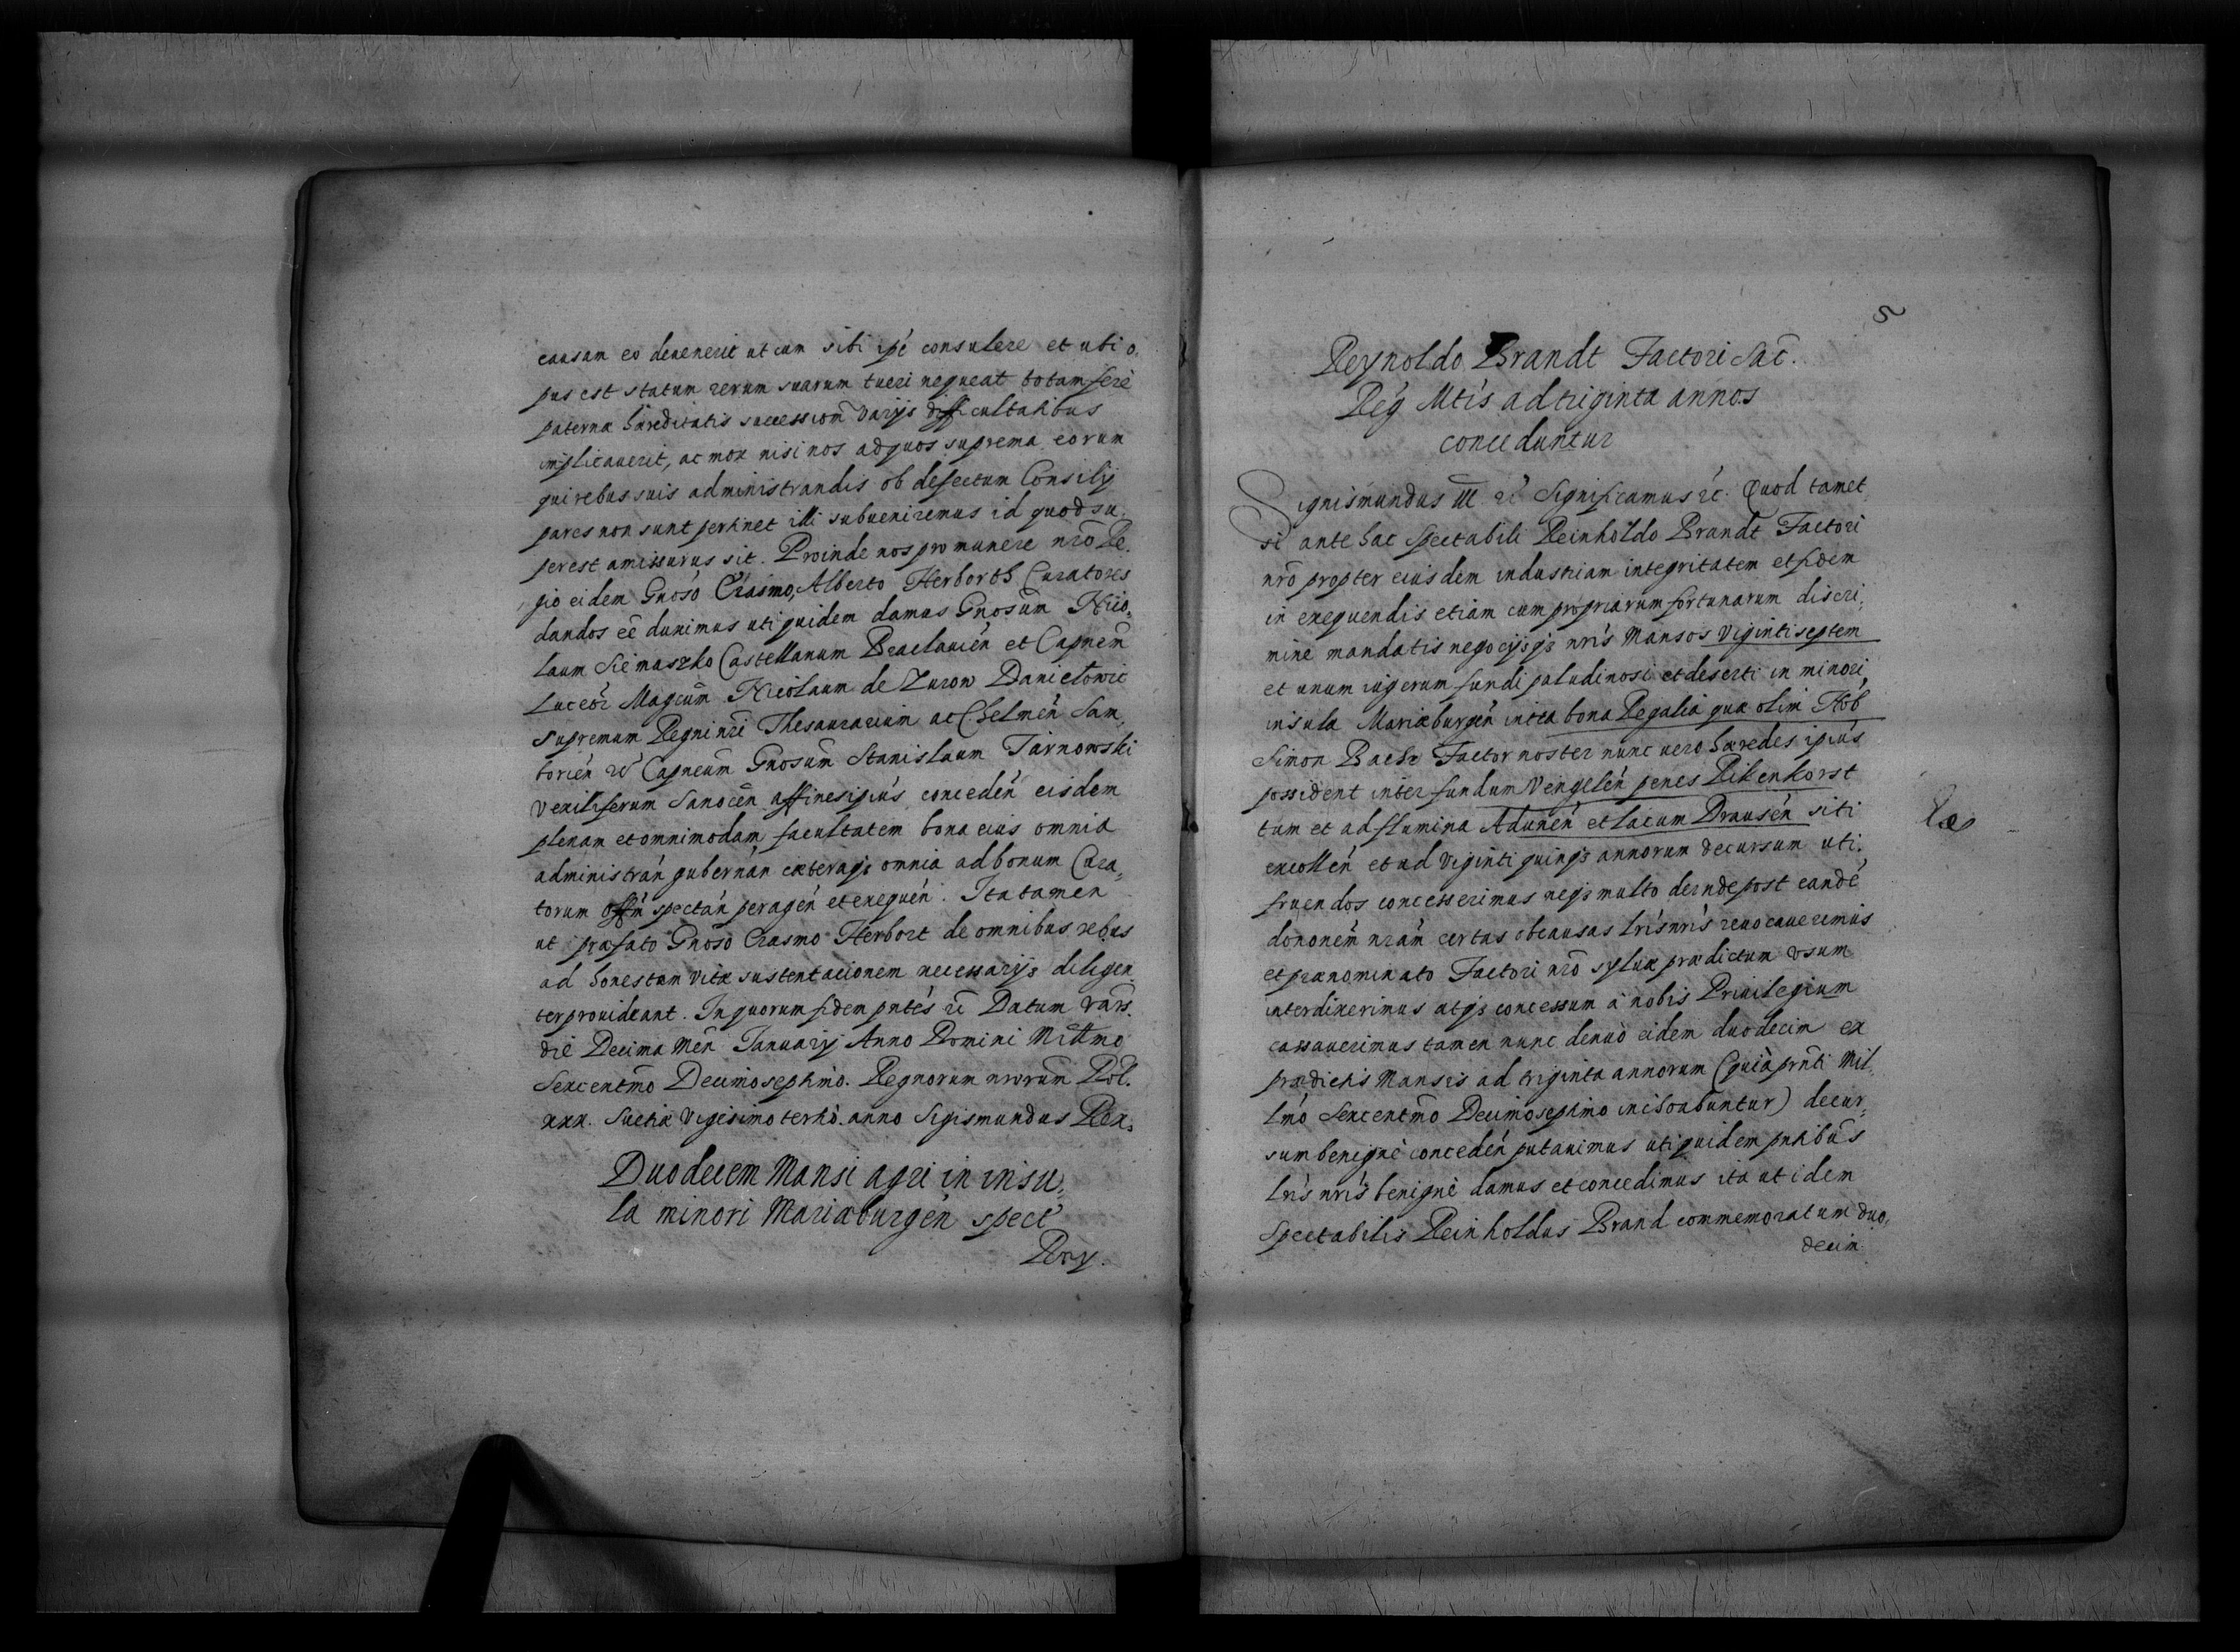 causam eo deuenerit ut cum sibi ipé consulere et uti o,
pus est statum rerum suarum tueri nequeat totam ferè
paternæ hæreditatis successiom̄ varijs difficultatibus
implicauerit, ac mox nisi nos ad quos suprema eorum
qui rebus suis administrandis ob defectum Consilij
pares non sunt pertinet illi subueniremus id quod su,
perest amissurus sit. Proinde nos pro munere nr̄o Re,
gio eidem Gnoso Erasmo, Alberto Herborth Curatores
dandos eē duximus uti quidem damus Gnosum̄ Nico,
laum Siemaszko Castellanum Braclauien̄ et Capnem̄
Luceor̄ Magcum̄ Nicolaum de Zurow Danielowic
Supremum Regni nr̄i Thesaurarium ac Chelmen̄ Sam,
borien̄ rc̄ Capneum̄ Gnosum̄ Stanislaum Tarnowski
Vexiliferum Sanocen̄ affines ipius̄ conceden̄ eisdem
plenam et omnimodam facultatem bona eius omnia
administran̄ gubernan̄ cæteraqȝ omnia ad bonum Cura,
torum offn̄ spectan̄ peragen̄ et exequen̄. Ita tamen
ut præfato Gnoso Erasmo Herbort de omnibus rebus
ad honestam vitæ sustentationem necessarijs diligen
ter prouideant. In quorum fidem pntes̄ rc̄ Datum Vars.
die Decima Men̄ Januarij Anno Domini Millmo
Sexcentmō Decimoseptimo. Regnorum nrorum̄ Pol.
xxx. Suetiæ vigesimo tertio. anno Sigismundus Rex,
Duodecem Mansi agri in insu,
la minori Mariæburgen̄ spect̄
Rey.
5
Reynoldo Brandt Factori Sac̄.
Reḡ Mtis̄ ad triginta annos
conceduntur
Sigismundus III. rc̄ Significamus rc̄. Quod tamet
si ante hac spectabili Reinholdo Brandt Factori
nrō propter eiusdem industriam integritatem et fidem
in exequendis etiam cum propriarum fortunarum discri,
mine mandatis negocijsqȝ nris̄ Mansos viginti septem
et unum iugerum fundi paludinosi et deserti in minori,
insula Mariæburgen̄ intra bona Regalia quæ olim Hob̄
Simon Bachr Factor noster nunc uero hæredes ipius̄
possident inter fundum Vengelen̄ penes Rikenhorst
tum et ad flumina Adunen̄ et lacum Drausen̄ siti
excollen̄ et ad viginti quinqȝ annorum decursum uti,
fruendos concesserimus neqȝ multo deinde post eandē
dononem̄ nram̄ certas ob causas lris̄ nris̄ reuocauerimus
et prænominato Factori nrō syluæ prædictum usum
interdixerimus atqȝ concessum a nobis Priuilegium
cassauerimus tamen nunc denuò eidem duodecim ex
prædictis Mansis ad triginta annorum (qui à prnti Mil,
lmo Sexcentmō Decimoseptimo inchoabuntur) decur,
sum benignè conceden̄ putauimus uti quidem pntibus̄
lris̄ nris̄ benignè damus et concedimus ita ut idem
Spectabilis Reinholdus Brand commemoratum duo,
decim